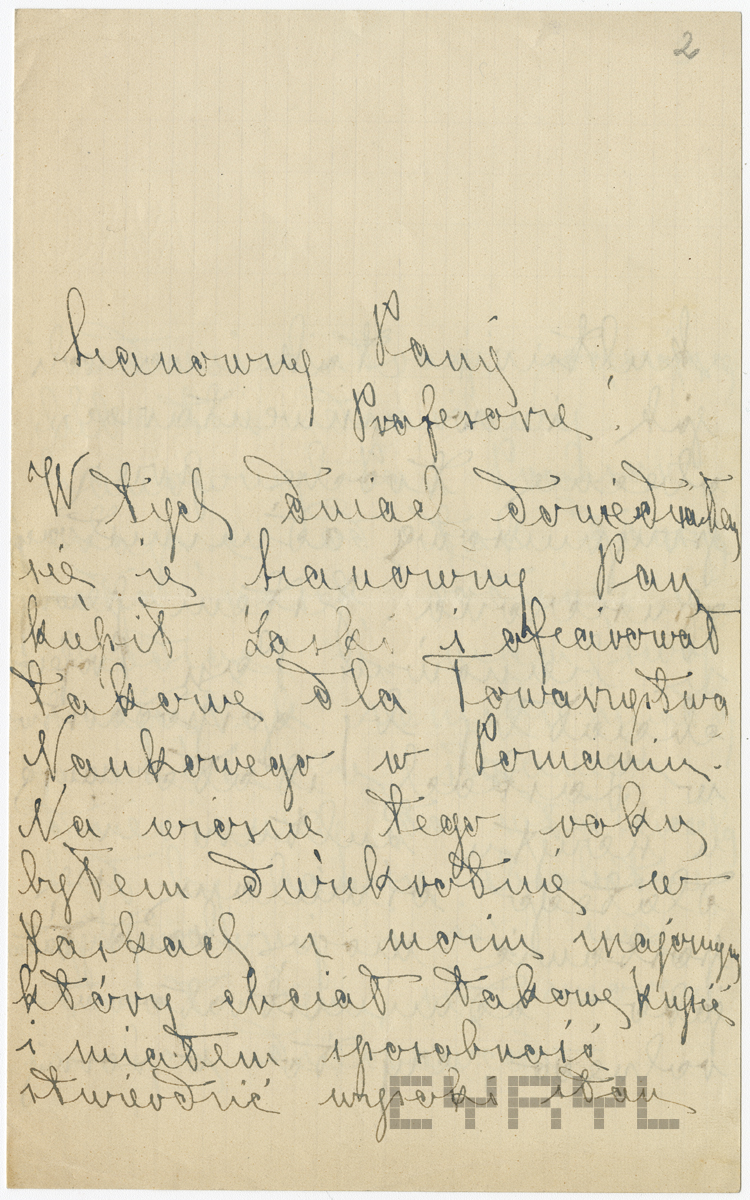 2
Szanowny Panie
Profesorze!
W tych dniach dowiedziałem
się że Szanowny Pan
kupił Łaski i ofiarował
takowe dla Towarzystwa
Naukowego w Poznaniu.
Na wiosnę tego roku
byłem dwukrotnie w
Łaskach z moim znajomym
który chciał takowe kupić
i miałem sposobność
stwierdzić wysoki stan
CYRYL